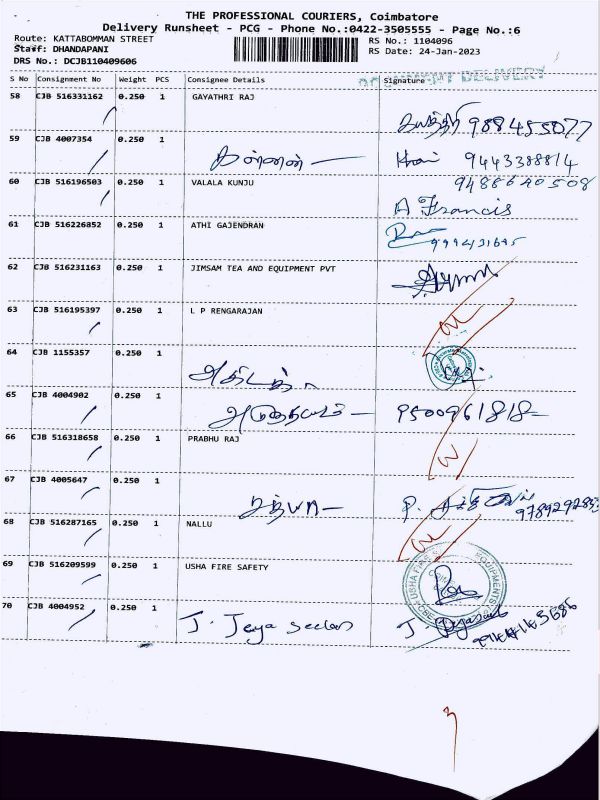 THE PROFESSIONAL COURIERS, Coimbatore
Delivery Runsheet - PCG - Phone No.:0422-3505555 - Page No.:6
Route: KATTABOMMAN STREET
RS No.: 1104096
Staff: DHANDAPANI
RS Date: 24-Jan-2023
DRS No.: DCJB110409606
S No Consignment No Weight PCS Consignee Details Signature
DELIVERY
58 CJB 516331162 0.250 1 GAYATHRI RAJ
காயத்ரி 9884555077
59 CJB 4007354 0.250 1
கண்ணன் 9443388814
60 CJB 516196503 0.250 1 VALALA KUNJU
9488640508
A Francis
61 CJB 516226852 0.250 1 ATHI GAJENDRAN
62 CJB 516231163 0.250 1 JIMSAM TEA AND EQUIPMENT PVT
63 CJB 516195397 0.250 1 L P RENGARAJAN
64 CJB 1155357 0.250 1
65 CJB 4004902 0.250 1
9500961818
66 CJB 516318658 0.250 1 PRABHU RAJ
67 CJB 4005647 0.250 1
சத்யா
68 CJB 516287165 0.250 1 NALLU
69 CJB 516209599 0.250 1 USHA FIRE SAFETY
USHA FIRE EQUIPMENTS
70 CJB 4004952 0.250 1
J. Jeya Seelan